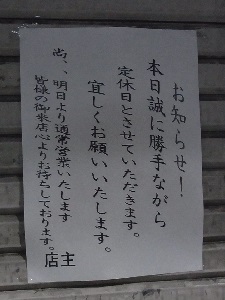 お知らせ！
本日誠に勝手ながら
定休日とさせていただきます。
宜しくお願いいたします。
尚、、明日より通常営業いたします
皆様の御来店心よりお待ちしております。
店主